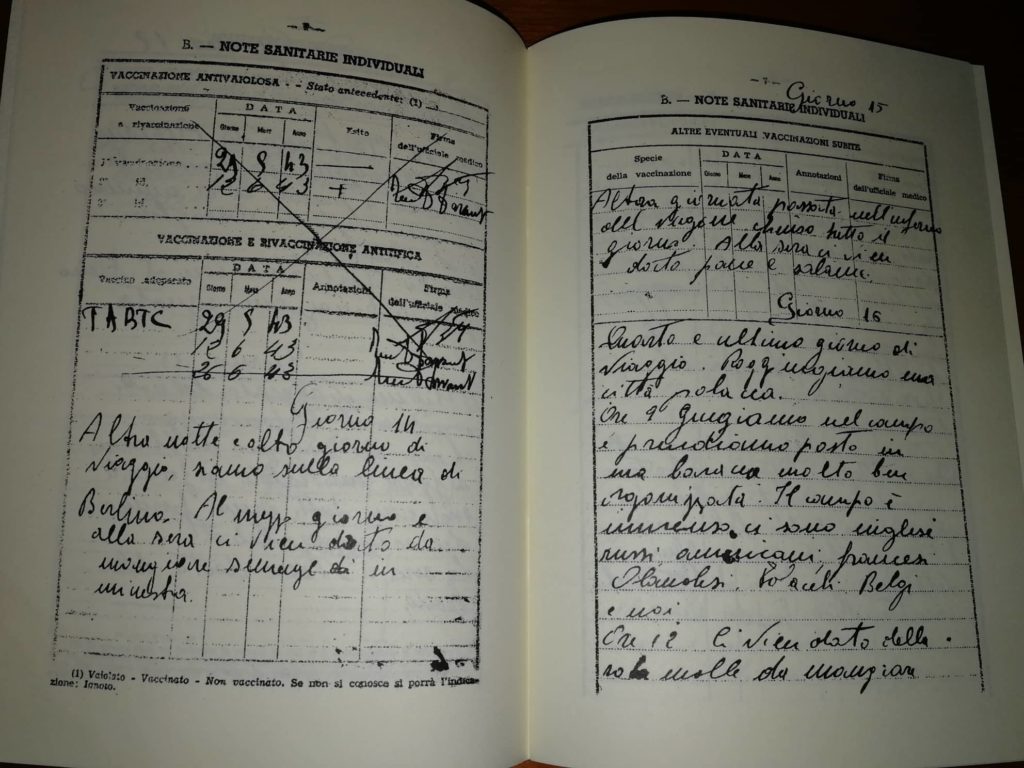 B. — NOTE SANITARIE INDIVIDUALI
VACCINAZIONE ANTIVAIOLOSA - - Stato antecedente: (1)
Vaccinazione e rivaccinazione
DATA
Giorno Mese Anno
Esito
Firma dell'ufficiale medico
1ª vaccinazione 29 5 43
2ª id. 12 6 43 +
3ª id.
VACCINAZIONE E RIVACCINAZIONE ANTITIFICA
Vaccino adoperato
DATA
Giorno Mese Anno
Annotazioni
Firma dell'ufficiale medico
TABTC 29 5 43
12 6 43
26 6 43
Giorno 14
Altra notte e altro giorno di
viaggio, siamo sulla linea di
Berlino. Al mezzo giorno e
alla sera ci vien dato da
mangiare di
minestra.
(1) Vaiolato - Vaccinato - Non vaccinato. Se non si conosce si porrà l'indica-
zione: Ignoto.
— 7 —
Giorno 15
B. — NOTE SANITARIE INDIVIDUALI
ALTRE EVENTUALI VACCINAZIONI SUBITE
Specie della vaccinazione
DATA
Giorno Mese Anno
Annotazioni
Firma dell'ufficiale medico
Altra giornata passata nell'inferno
del vagone chiuso tutto il
giorno. Alla sera ci vien
dato pane e salame.
Giorno 16
Quarto e ultimo giorno di
viaggio. Raggiungiamo una
città polacca.
Ore 9 Giungiamo nel campo
e prendiamo posto in
una baracca molto ben
organizzata. Il campo è
immenso, ci sono inglesi
russi, americani, francesi
Olandesi, Belgi
e noi
Ore 12 Ci vien dato della
molle da mangiare